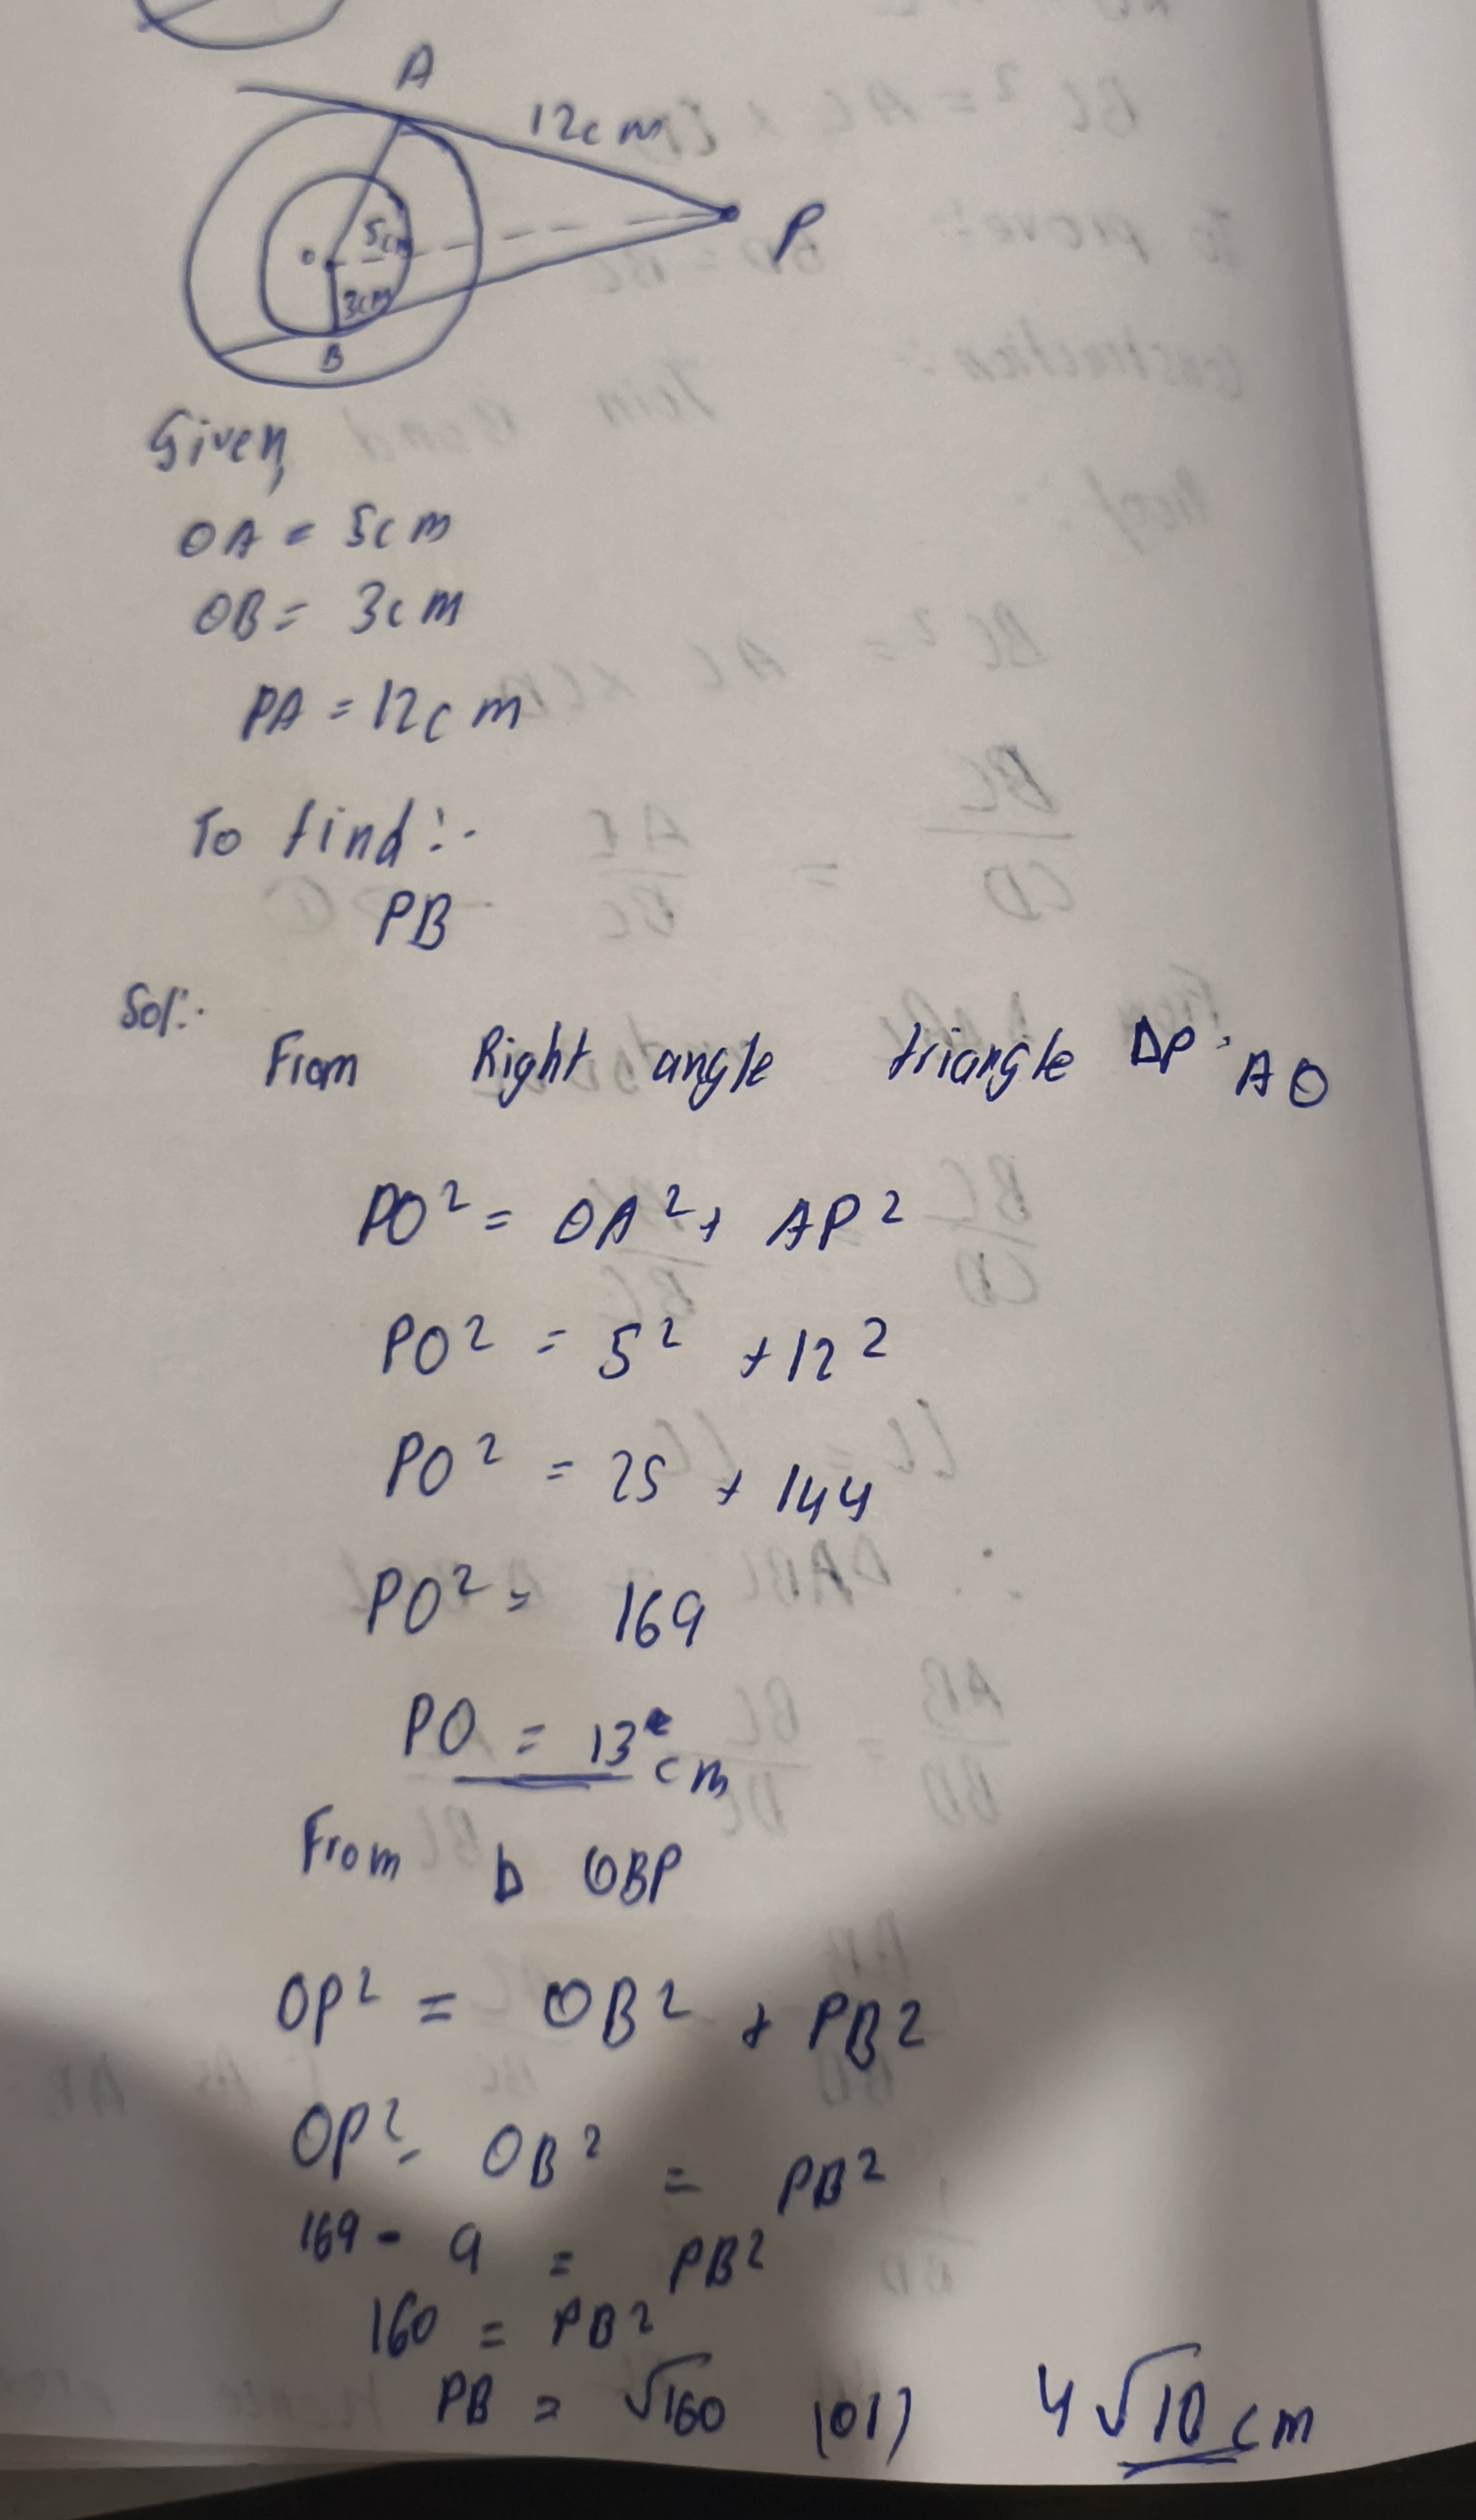 A
12cm
P
5cm
O
3cm
B
Given,
OA = 5cm
OB = 3cm
PA = 12cm
To find:-
PB
Sol:-
From Right angle triangle ΔP AO
PO² = OA² + AP²
PO² = 5² + 12²
PO² = 25 + 144
PO² = 169
PO = 13 cm
From Δ OBP
OP² = OB² + PB²
OP² - OB² = PB²
169 - 9 = PB²
160 = PB²
PB = √160 (or) 4√10 cm